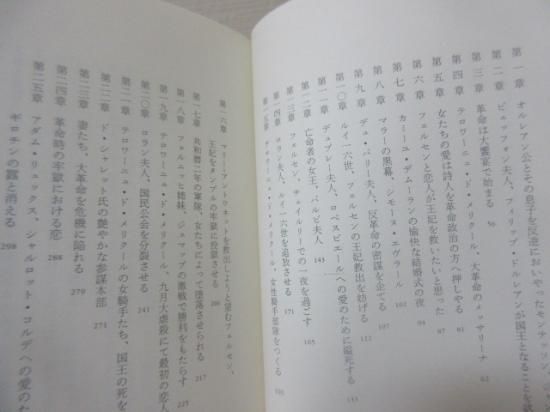 第一章 オルレアン公とその子息を反逆においやったモンテッソン
第二章 ビュッフォン夫人、フィリップ・ドルレアンが国王となることを欲
第三章 革命は大饗宴で始まる 56
第四章 テロワーニュ・ド・メリクール、大革命のメッサリーナ 62
第五章 女たちの愛は詩人を革命政治の方へ押しやる 81
第六章 フェルセンと恋人が王妃を救いたいと思って
第七章 カミーユ・デムーランの愉快な結婚式の夜 94
第八章 マラーの黒幕、シモーヌ・エヴラール 102
第九章 デュ・バリー夫人、反革命の密謀を企てる 112
ルイ一六世、フェルセンの王妃救出を妨げる 122
デュプレー夫人、ロベスピエールへの愛のために溺死する 133
亡命者の女王、バルビ夫人 143
フェルセン、チュイルリーでの一夜を過ごす
第一四章 ロラン夫人、ルイ一六世を追放させる 171
第一五章 テロワーニュ・ド・メリクール、女性騎手部隊をつくる
第一六章 マリー・アントワネットを救出しようと望むフェルセン、
王妃をタンプルの牢獄に投獄させる 206
第一七章 共和暦二年の軍隊、女たちによって堕落させられる 217
第一八章 フェルニヒ姉妹、ジュマップの激戦で勝利をもたらす 225
第一九章 テロワーニュ・ド・メリクール、九月大虐殺にて最初の恋人
第二〇章 ロラン夫人、国民公会を分裂させる 241
第二一章 テロワーニュ・ド・メリクールの女騎手たち、国王の死を
第二二章 ド・シャレット氏の艶やかな参謀本部 271
第二三章 妻たち、大革命を危機に陥れる 279
第二四章 革命時の牢獄における恋 288
第二五章 アダム・リュックス、シャルロット・コルデへの愛のた
ギロチンの露と消える 298